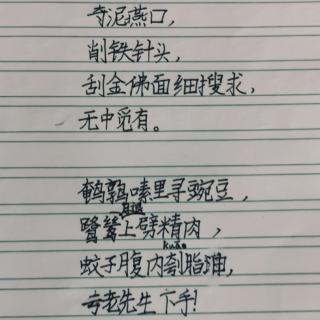 夺泥燕口，
削铁针头，
刮金佛面细搜求，
无中觅有。
鹌鹑嗉里寻豌豆，
鹭鸶腿上劈精肉，
蚊子腹内刳脂油，
亏老先生下手！